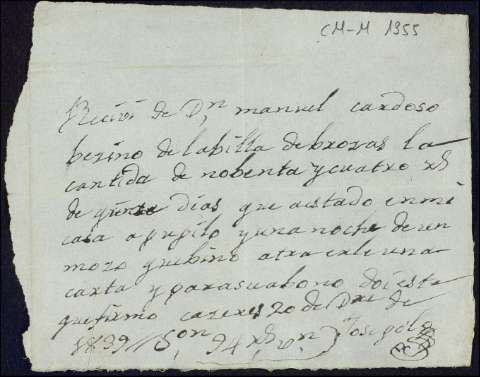 CM-M 1355
Recivi de Dn, manuel cardoso
bezino de la billa de brozas la
cantida de nobenta y cuatro rs
de quinze dias que aestado en mi
casa a pupilo y una noche de un
mozo que bino atraerle una
carta y para su abono doi este
que firmo cazeres 20 de Dre de
1839 // Son, 94 rs vn.) Jose